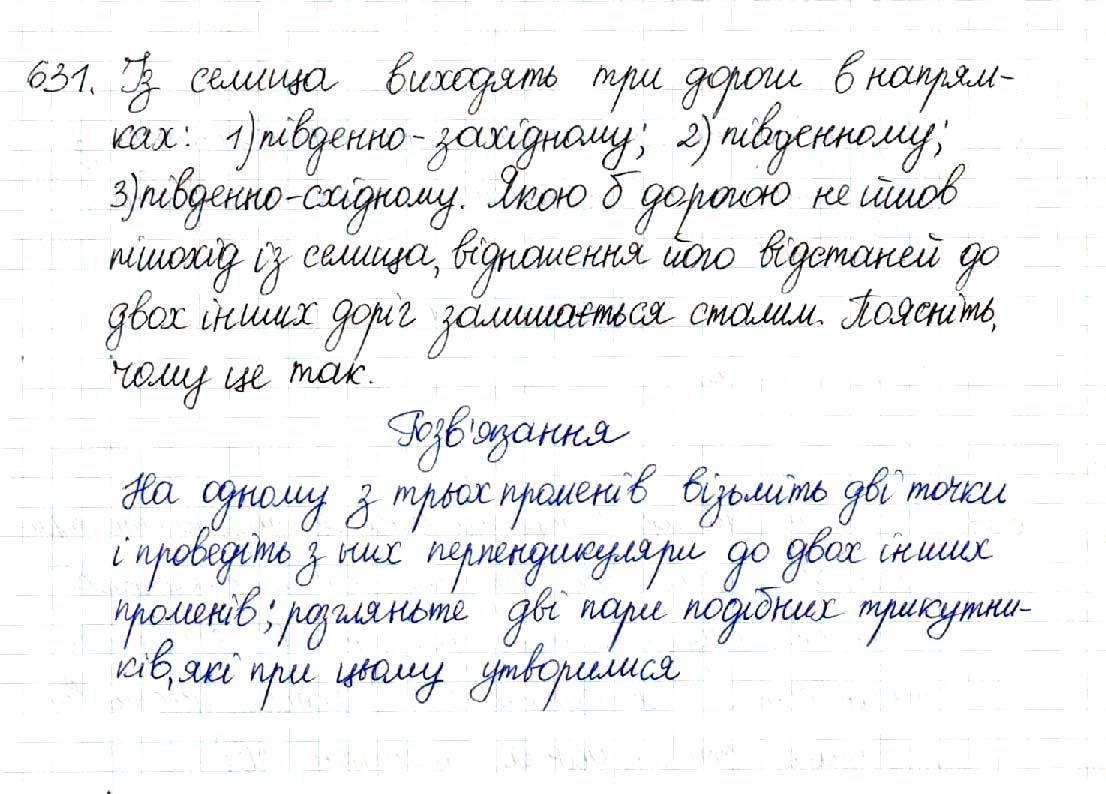 631. Із селища виходять три дороги в напрям-
ках: 1) південно-західному; 2) південному;
3) південно-східному. Якою б дорогою не йшов
пішохід із селища, відношення його відстаней до
двох інших доріг залишається сталим. Поясніть,
чому це так.
Розв'язання
На одному з трьох променів візьміть дві точки
і проведіть з них перпендикуляри до двох інших
променів; розгляньте дві пари подібних трикутни-
ків, які при цьому утворилися